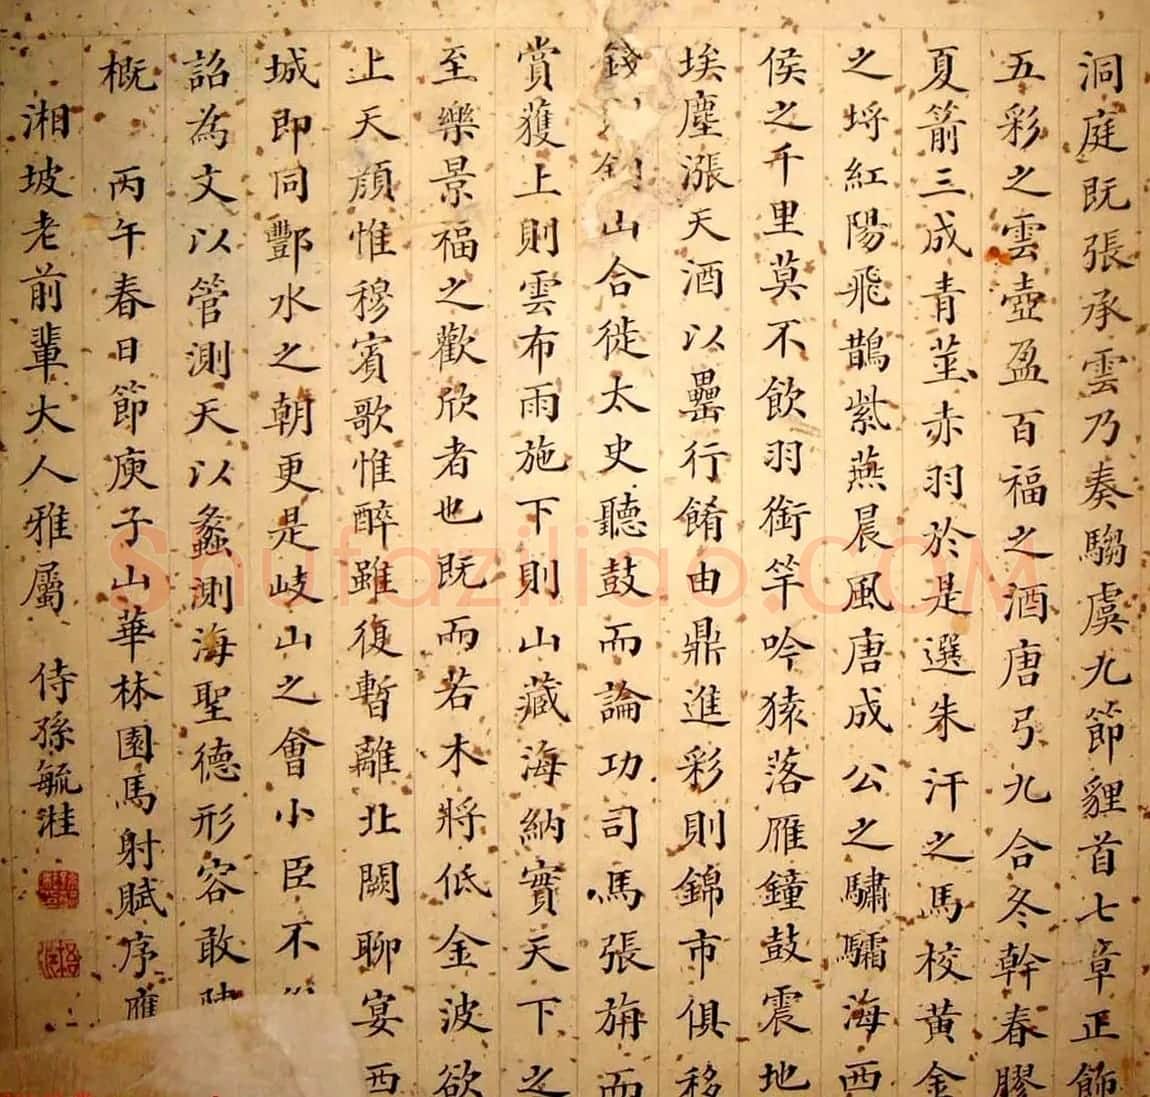 洞庭既張承雲乃奏騶虞九節貍首七章正飾
五彩之雲壺盈百福之酒唐弓九合冬幹春膠
夏箭三成青莖赤羽於是選朱汗之馬校黃金
之埒紅陽飛鵲紫燕晨風唐成公之驌驦海西
侯之千里莫不飲羽銜竿吟猿落雁鐘鼓震地
埃塵漲天酒以罍行餚由鼎進彩則錦市俱移
錢則劍山合徙太史聽鼓而論功司馬張旃而
賞獲上則雲布雨施下則山藏海納實天下之
至樂景福之歡欣者也既而若木將低金波欲
上天顏惟穆賓歌惟醉雖復暫離北闕聊宴西
城即同酆水之朝更是岐山之會小臣不
詔為文以管測天以蠡測海聖德形容敢陳
概 丙午春日節庾子山華林園馬射賦序應
湘坡老前輩大人雅屬 侍孫毓溎
Shufaziliao.COM